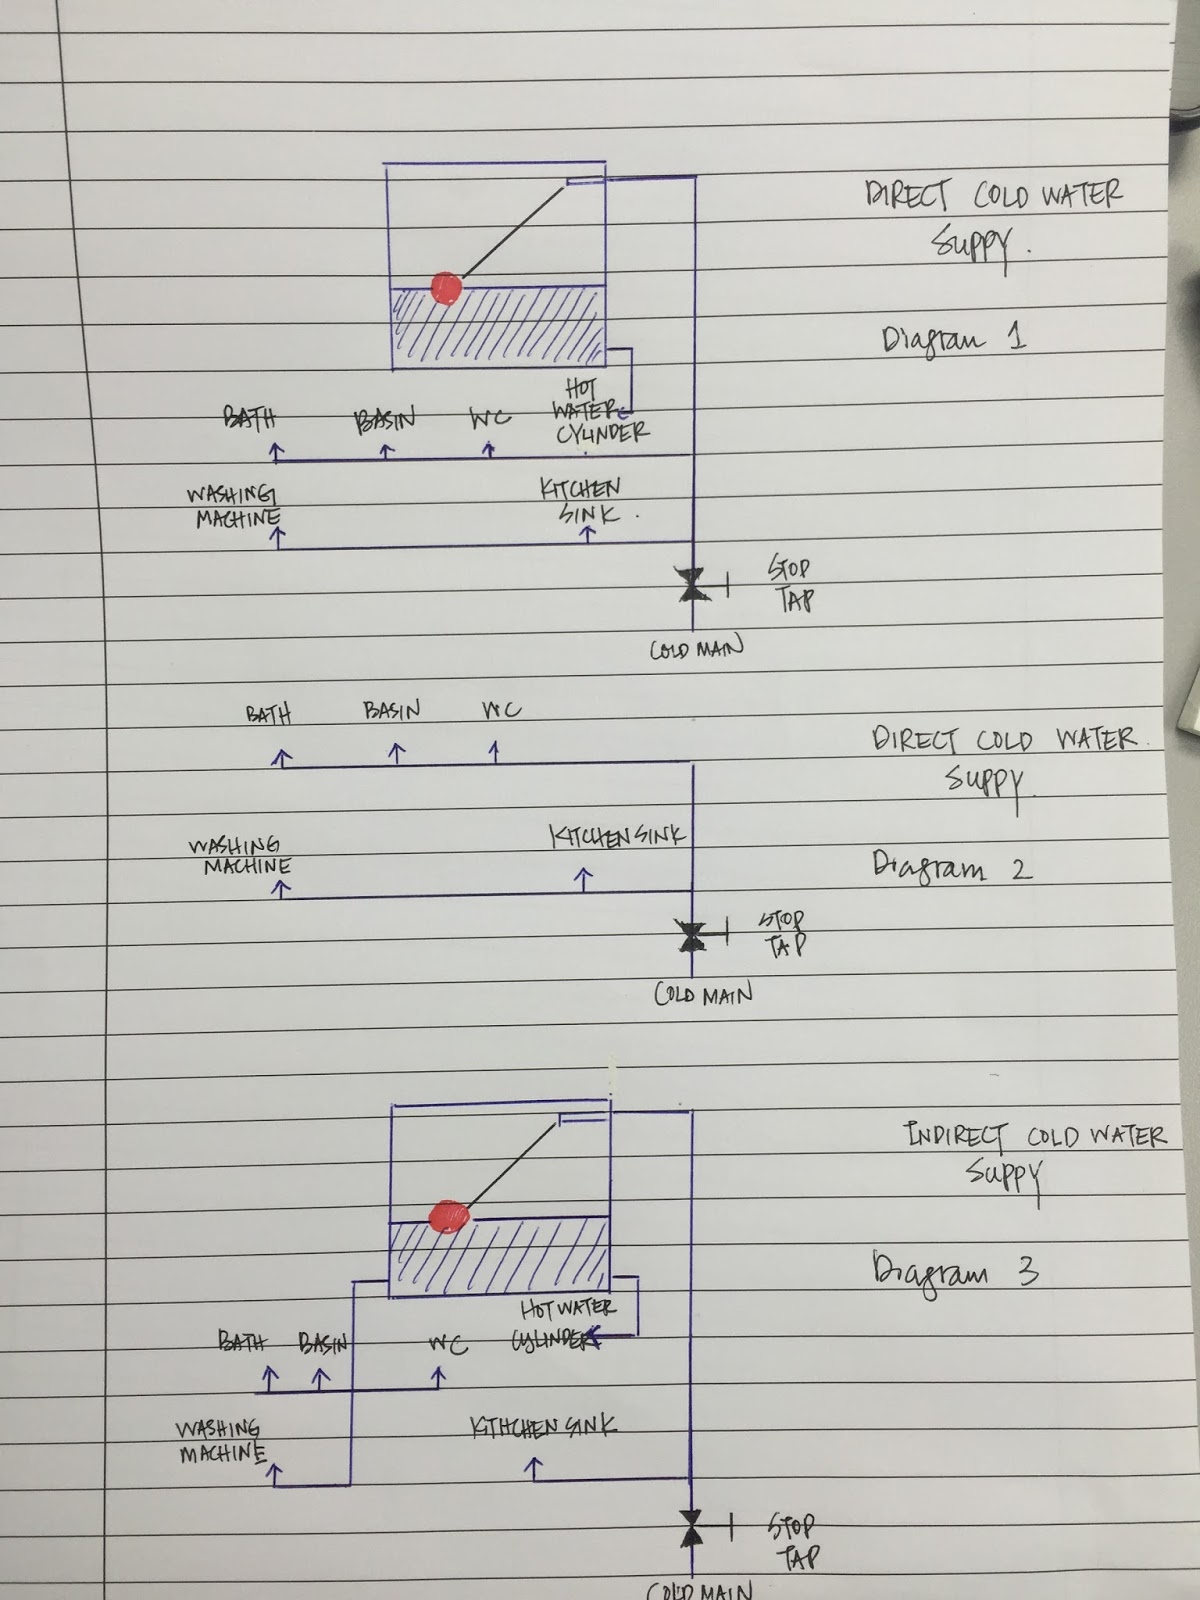 DIRECT COLD WATER
SUPPY.
Diagram 1
HOT
WATER
CYLINDER
BATH BASIN WC
WASHING
MACHINE
KITCHEN
SINK.
STOP
TAP
COLD MAIN
BATH BASIN WC
DIRECT COLD WATER.
SUPPY.
WASHING
MACHINE
KITCHEN SINK
Diagram 2
STOP
TAP
COLD MAIN
INDIRECT COLD WATER
SUPPY
Diagram 3
HOT WATER
CYLINDER
BATH BASIN WC
WASHING
MACHINE
KITHCHEN SINK
STOP
TAP
COLD MAIN